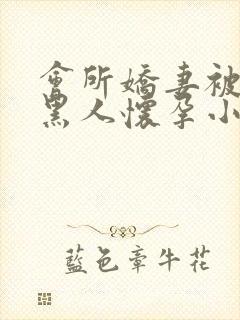 會所嬌妻被
黑人懷孕小
藍色牽牛花